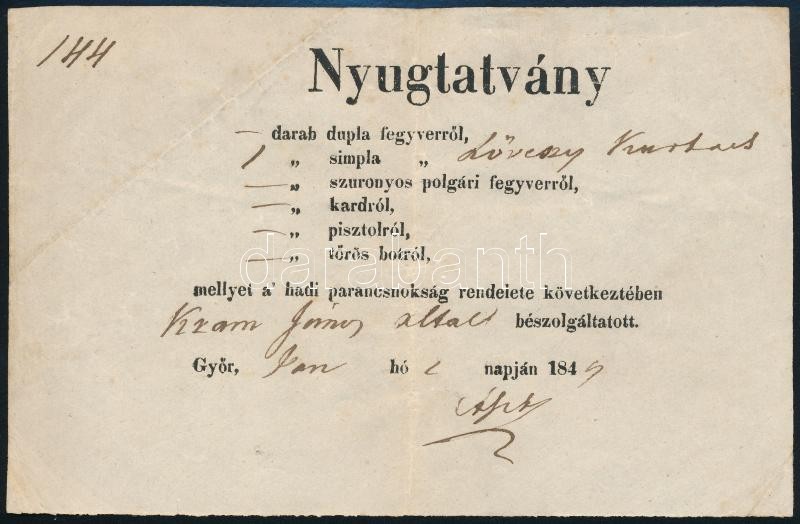 144
Nyugtatvány
— darab dupla fegyverről,
1 „ simpla „
— „ szuronyos polgári fegyverről,
— „ kardról,
— „ pisztolról,
— „ tőrös botról,
darabanth
mellyet a' hadi parancsnokság rendelete következtében
Kram János által bészolgáltatott.
Győr, Jan hó 1 napján 1849